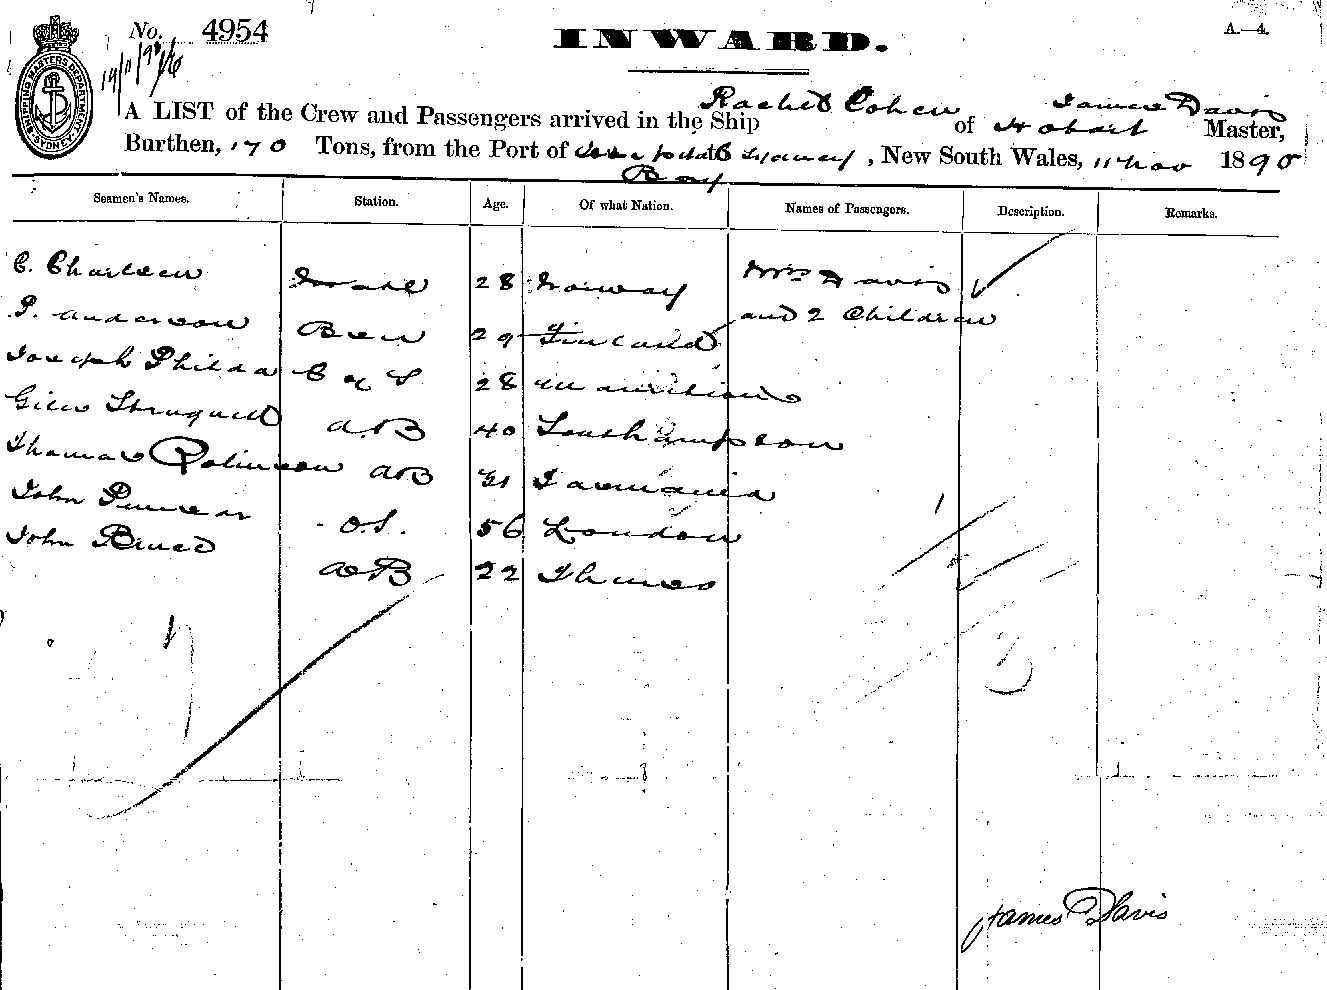 No. 4954
INWARD.
A.—4.
SHIPPING MASTERS DEPARTMENT
SYDNEY
A LIST of the Crew and Passengers arrived in the Ship Rachel Cohen of Hobart James Davis Master,
Burthen, 170 Tons, from the Port of to Sydney, New South Wales, 11 Nov 1890
Bay
Seamen's Names. Station. Age. Of what Nation. Names of Passengers. Description. Remarks.
C. Charlsen Mate 28 Norway Mrs Davis
P. Anderson Bsn 29 Finland and 2 Children
Joseph C & S 28 Mauritius
Giles AB 40 Southampton
Thomas Robinson AB 31 Tasmania
John O.S. 56 London
John Bruce AB 22 Thames
James Davis